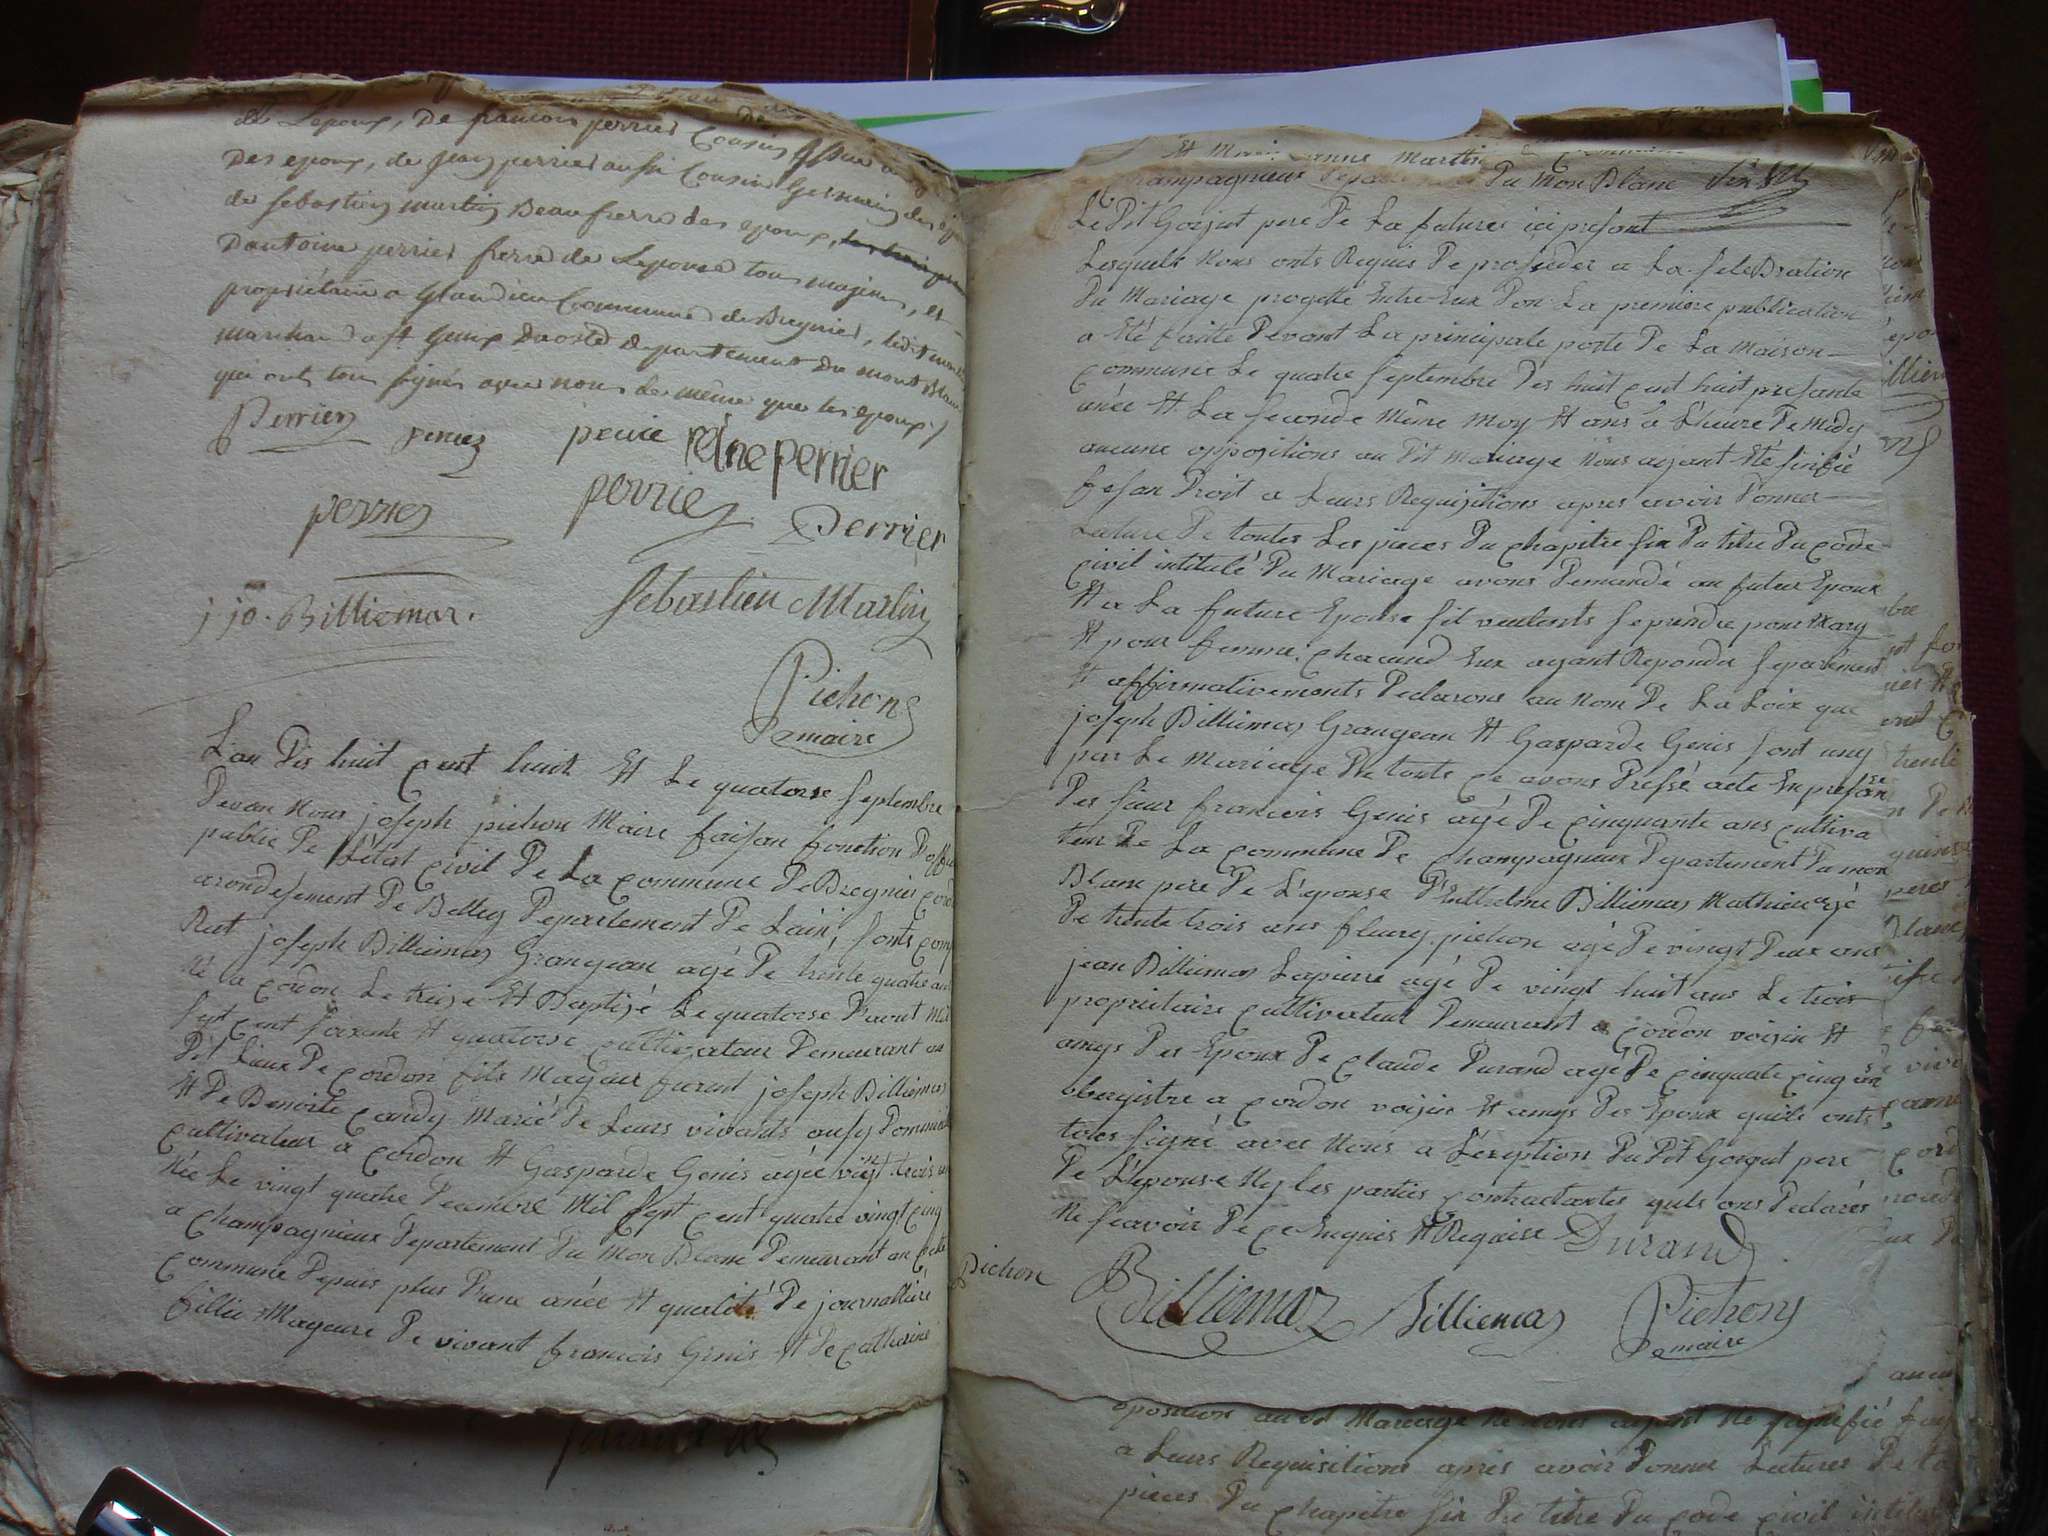 de Lepoux, De francois perrier Cousin
Des epoux, de jean perrier aussi Cousin Germain des
de sebastien martin Beaufrerre des epoux,
Dantoine perrier frerre de Lepouse tous majeurs, et
propriétaire a Glandieu Commune de Bregnier, ledit
a st genix Daoste Departement Du mont Blanc
qui ont tous signés avec nous de même que les epoux /
Perrier perrier reine perrier
perrier perrier Perrier
j jo. Billiemar. Sebastien Martin
Pichon
Demaire
L'an Dis huit cent huit Et Le quatorse septembre
Devan Nous joseph pichon Maire faisan fonction D'
public De L'état civil De La commune De Bregnier
arondesement De Belley Departement De Lain, sonts
Rut joseph Billiemas Grangean agé De trente quatre
Né a cordon Le treise Et Baptizé Le quatorse Daout
sept cent soixente Et quatorse cultivateur Demeurant au
Dit Lieux De cordon fils Mageur furent joseph Billiemas
Et De Benoite candy Marié De Leurs vivants
cultivateur a cordon Et Gasparde Genis agée vingt trois
Née Le vingt quatre Decembre Mil sept cent quatre vingt cinq
a champagnieux Departement Du Mon Blanc Demeurant en
commune Depuis plus D'une anée Et qualité De journalliere
fillie Mageure De vivant francois Genis Et De catherine
Et anne Martin
champagnieux Du Mon Blanc
Le Dit Gorjut pere De La future ici presant
Lesquels Nous onts Requis De proseder a La selebration
Du Mariage progetté Entre Eux Don La premiere publication
a Eté faitte Devant La principale porte De La Maison
commune Le quatre septembre Dés huit cent huit presante
anée Et La seconde Même Moy Et ans a L'heure De Midy
aucune oppositions au Dit Mariage Nous ayant Eté
fesan Droit a Leurs Requisitions apres avoir Donner
Lecture De toutes Les pieces Du chapitre six Du titre Du code
civil intitulé Du Mariage avons Demandé au futur Epoux
Et a La future Epouse sil veulents se prendre pour Mary
Et pour femme; chacund Eux ayant Repondu separément
Et affirmativements Declarons au Nom De La Loix que
joseph Billiemas Grangean Et Gasparde Genis sont uny
par Le Mariage De toute ce avons Dressé acte En presance
Des sieur francois Genis agé De cinquante ans cultiva
teur De La commune De champagneux Departement Du mon
Blanc pere De L'epouse D'Anthelme Billiemas Mathieu agé
De trente trois ans fleury pichon agé De vingt Deux ans
jean Billiemas Lapierre agé De vingt huit ans Le trois
propriétaire cultivateur Demeurant a cordon voisin Et
amys Des Epoux De claude Durand agé De cinquate cinq ans
a cordon voisin Et amys Des Epoux quils onts
tous signé avec Nous a L'exeption Du Dit Gorgut pere
De L'épouse Ny les parties contractantes quls ons Declarés
Ne scavoir De ce Enquis Et Requise Durand
Pichon Billiemaz Billiemas Pichon
Demaire
oposition au dit Mariage
a Leurs Requisitions apres avoir Donner Lectures De
pieces Du chapitre six Du titre Du code civil